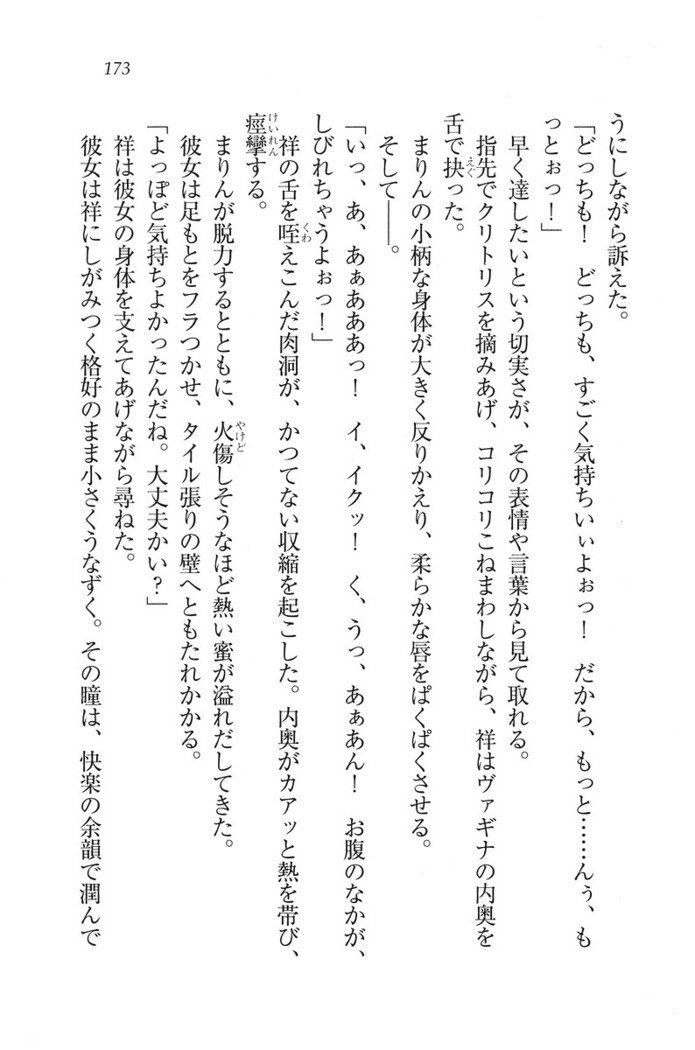 173
うにしながら訴えた。
「どっちも！　どっちも、すごく気持ちいぃよぉっ！　だから、もっと……んぅ、も
っとぉっ！」
早く達したいという切実さが、その表情や言葉から見て取れる。
指先でクリトリスを摘みあげ、コリコリこねまわしながら、祥はヴァギナの内奥を
舌で抉った。
まりんの小柄な身体が大きく反りかえり、柔らかな唇をぱくぱくさせる。
そして――。
「いっ、あ、あぁあああっ！　イ、イクッ！　く、うっ、あぁあん！　お腹のなかが、
しびれちゃうよぉっ！」
祥の舌を咥えこんだ肉洞が、かつてない収縮を起こした。内奥がカアッと熱を帯び、
痙攣する。
まりんが脱力するとともに、火傷しそうなほど熱い蜜が溢れだしてきた。
彼女は足もとをフラつかせ、タイル張りの壁へともたれかかる。
「よっぽど気持ちよかったんだね。大丈夫かい？」
祥は彼女の身体を支えてあげながら尋ねた。
彼女は祥にしがみつく格好のまま小さくうなずく。その瞳は、快楽の余韻で潤んで